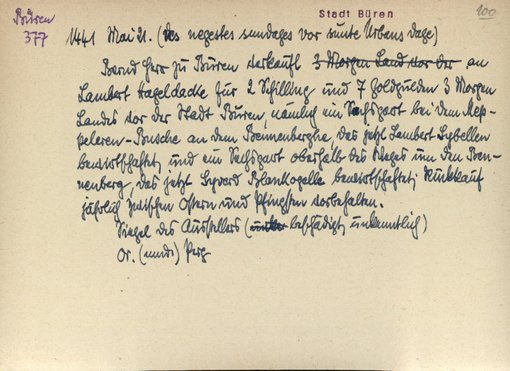 Büren
377
Stadt Büren
100
1441 Mai 21. (des negesten sundages vor sunte Urbens dage)
Bernd Herr zu Büren verkauft 3 Morgen Land vor der an
Lambert Hageldacke für 2 Schilling und 7 Goldgulden 3 Morgen
Landes vor der Stadt Büren, nämlich ein Sechsgart bei dem Kep-
peleren-Busche an dem Boennenberghe, das jetzt Lambert Sybellen
bewirtschaftet, und ein Sechsgart oberhalb des Weges um den Boen-
nenberg, das jetzt Syverd Blankogelle bewirtschaftet; Rückkauf
jährlich zwischen Ostern und Pfingsten vorbehalten.
Siegel des Ausstellers (beschädigt, unkenntlich)
Or. (mnd.) Perg